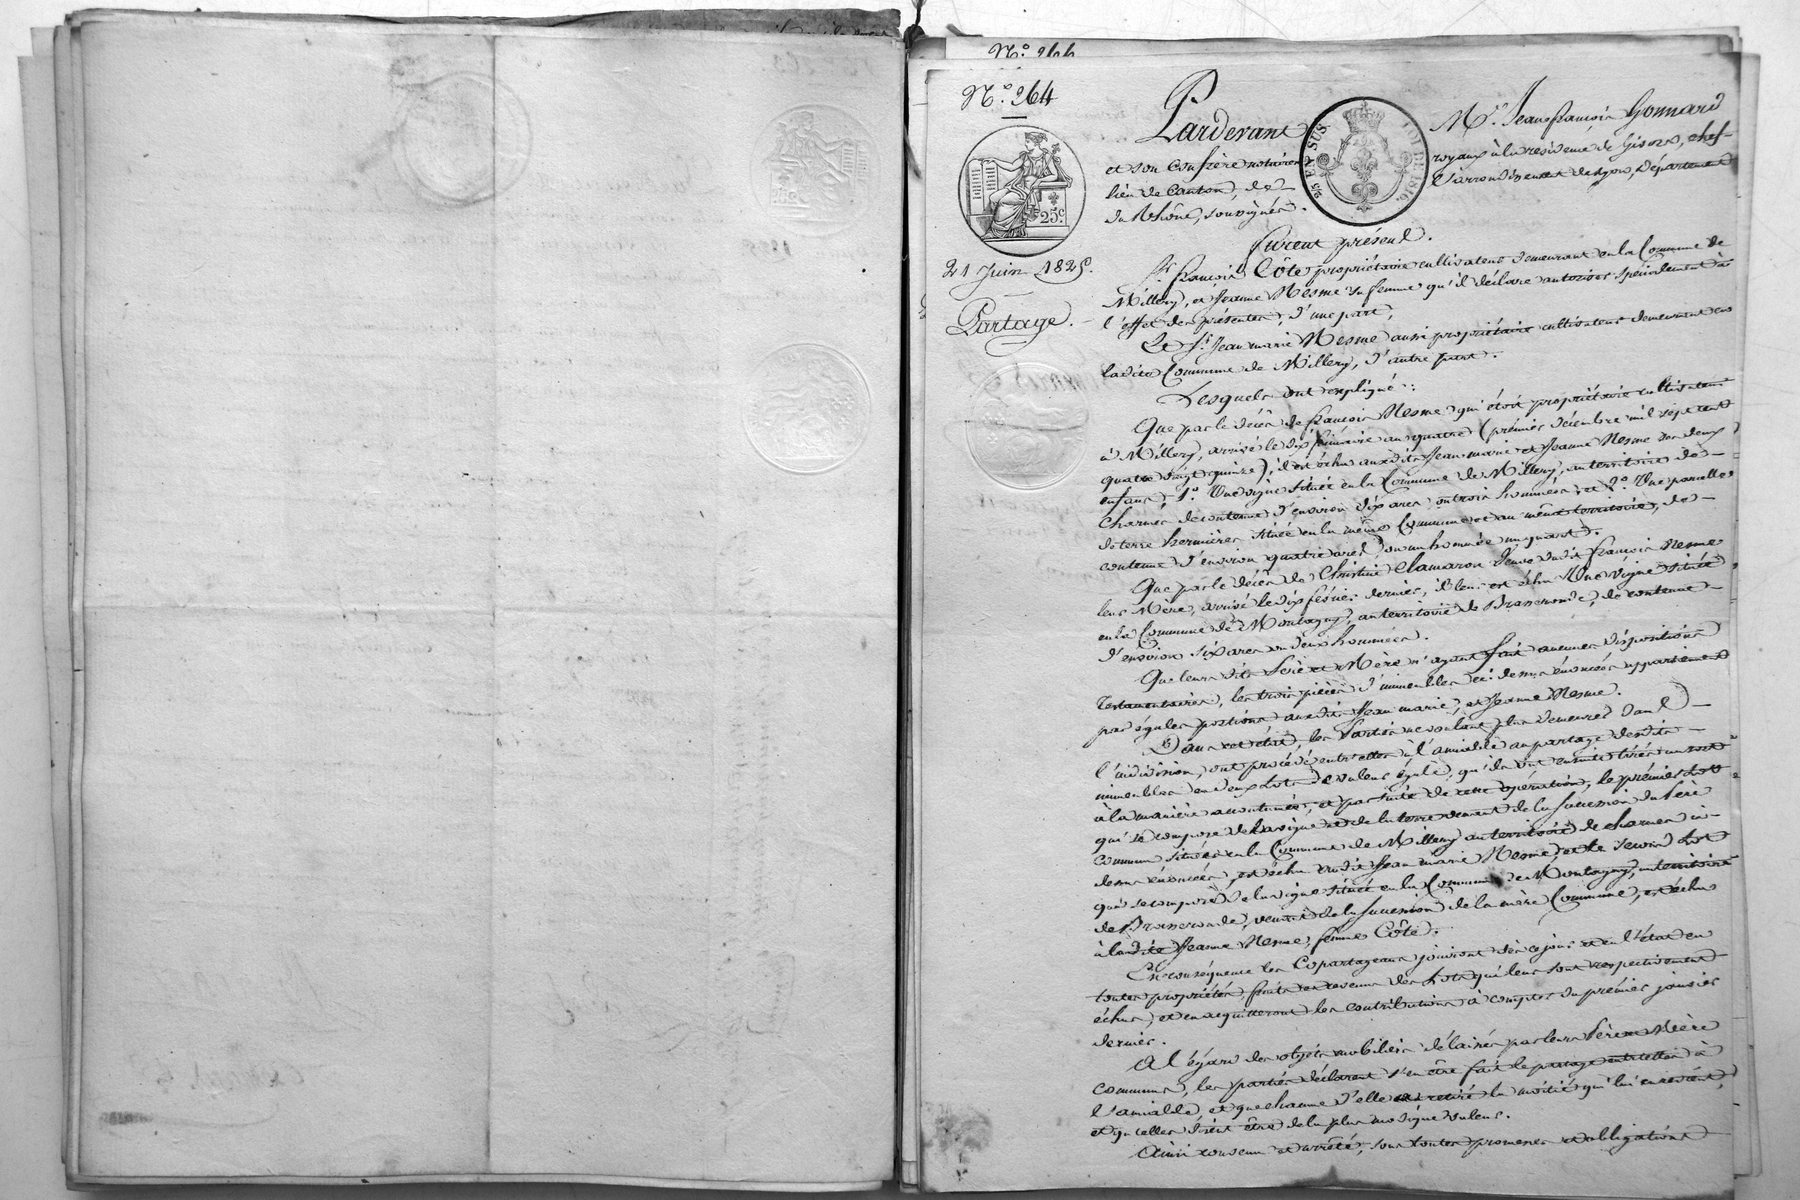 N.° 266
N.° 264
25 c.
21 Juin 1825.
Partage.
Pardevant M.e Jean François Gonnard
et son confrère notaires royaux à la résidence de Givors, chef-
lieu de Canton, de l'arrondissement de Lyon, Département
du Rhône, soussignés.
EN SUS
LOI DE 1816.
Furent présens.
S.r François Côte propriétaire cultivateur demeurant en la Commune de
Millery, et Jeanne Nesme sa femme qu'il déclare autoriser spécialement à
l'effet des présentes, d'une part,
Le S.r Jean marie Nesme aussi propriétaire cultivateur demeurant en
ladite Commune de Millery, d'autre part.
Lesquels ont expliqué :
Que par le décès de François Nesme qui étoit propriétaire cultivateur
à Millery, arrivé le dix frimaire an quatre (premier décembre mil sept cent
quatre vingt quinze), il est échu auxdits Jean marie et Jeanne Nesme ses deux
enfans, 1.° Une vigne située en la Commune de Millery, au territoire de
Charmes de contenue d'environ dix ares, ou trois hommées et 2.° Une parcelle
de terre hermière située en la même Commune et au même territoire, de
contenue d'environ quatre ares ou un hommée un quart.
Que par le décès de Christine Clamaron veuve dudit François Nesme
leur Mère, arrivé le dix février dernier, il leur est échu Une vigne située
en la Commune de Montagny, au territoire de de contenue
d'environ six ares ou deux hommées.
Que leurs dits Père et Mère n'ayant fait aucunes dispositions
testamentaires, les trois pièces d'immeubles ci-dessus énoncées appartiennent
par égales portions auxdits Jean marie, et Jeanne Nesme.
Dans cet état, les Parties ne voulant plus demeurer dans
l'indivision, ont procédé entr'elles à l'amiable au partage desdits
immeubles en deux Lots de valeur égale, qu'ils ont ensuite tirés au sort
à la manière accoutumée, et par suite de cette opération, le premier Lot
qui se compose de la vigne et de la terre venant de la succession du Père
commun situées en la Commune de Millery au territoire de charmes ci-
dessus énoncées, est échu audit Jean marie Nesme, et le second Lot
qui se compose de la vigne située en la Commune de Montagny, au territoire
de venant de la succession de la mère Commune, est échu
à ladite Jeanne Nesme, femme Côte.
En conséquence les Copartageans jouiront dès ce jour et en l'état en
toutes propriétés, fruits et revenus des Lots qui leur sont respectivement
échus, et en acquitteront les contributions à compter du premier janvier
dernier.
A l'égard des objets mobiliers délaissés par leurs Père et Mère
communs, les parties déclarent s'en être fait le partage entr'elles à
l'amiable, et que chacune d'elle a retiré la moitié qui lui en revient,
et qu'elles disent être de la plus modique valeur.
Ainsi convenu et arrêté, sous toutes promesses et obligations